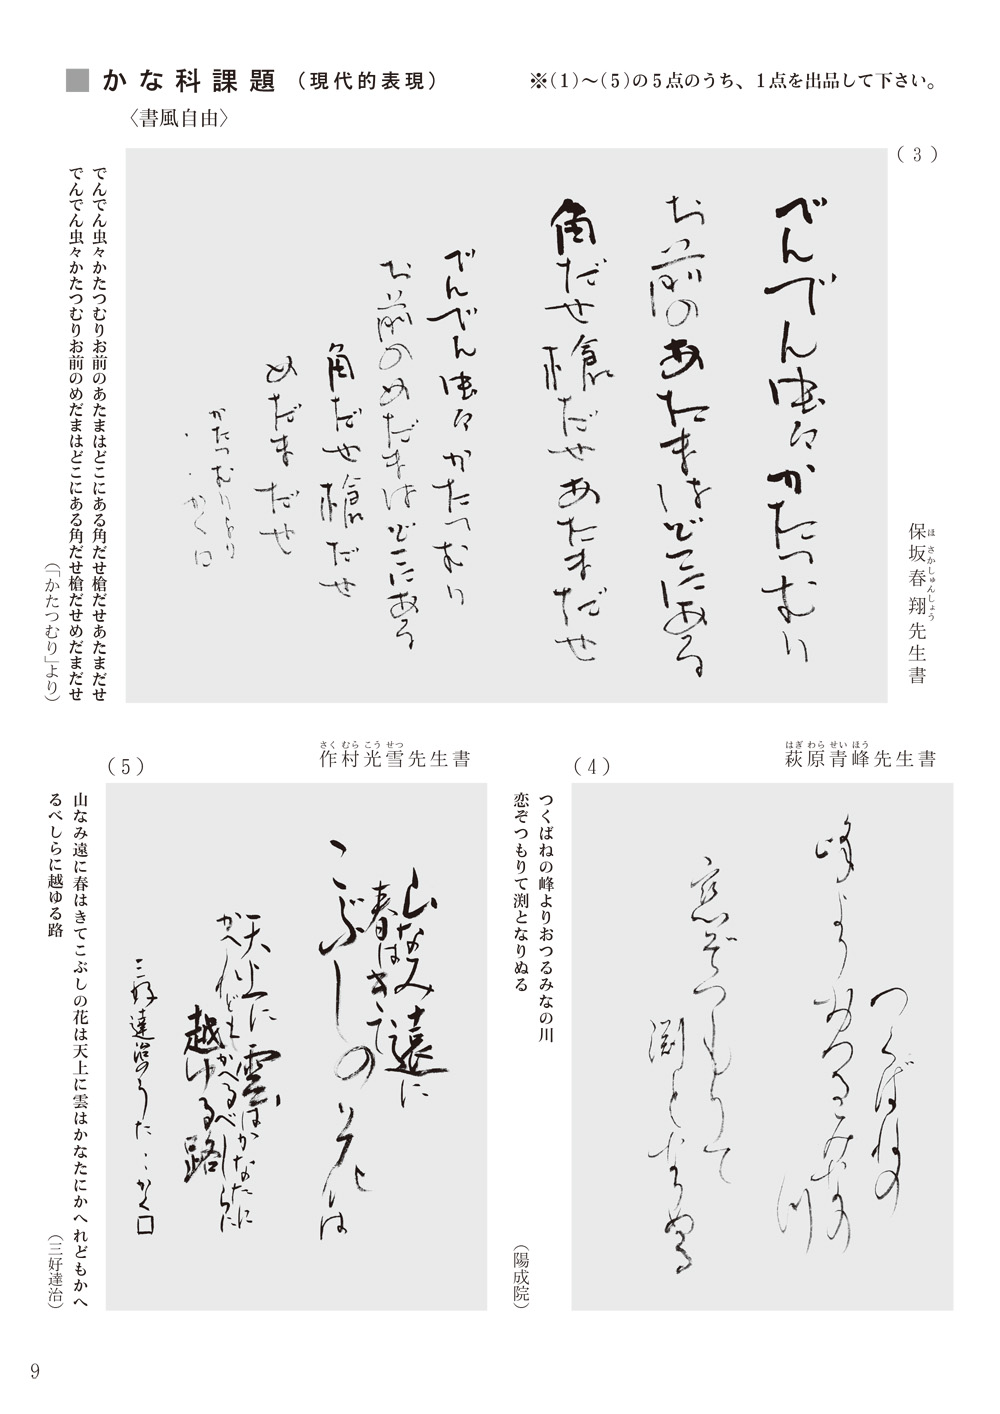 ■かな科課題（現代的表現）
※(1)～(5)の5点のうち、1点を出品して下さい。
〈書風自由〉
（3）
保坂春翔先生書
ほさかしゅんしょう
でんでん虫々かたつむり
お前のあたまはどこにある
角だせ槍だせあたまだせ
でんでん虫々かたつむり
お前のめだまはどこにある
角だせ槍だせ
めだまだせ
かたつむりより
かく□
でんでん虫々かたつむりお前のあたまはどこにある角だせ槍だせあたまだせ
でんでん虫々かたつむりお前のめだまはどこにある角だせ槍だせめだまだせ
（「かたつむり」より）
（4）
萩原青峰先生書
はぎわらせいほう
つくばねの
峰より
おつるみなの
川
恋ぞつもりて
渕となりぬる
つくばねの峰よりおつるみなの川
恋ぞつもりて渕となりぬる
（陽成院）
（5）
作村光雪先生書
さくむらこうせつ
山なみ遠に
春はきて
こぶしの
花は
天上に雲はかなたに
かへれどもかへるべしらに
越ゆる路
三好達治のうた…かく□
山なみ遠に春はきてこぶしの花は天上に雲はかなたにかへれどもかへ
るべしらに越ゆる路
（三好達治）
9